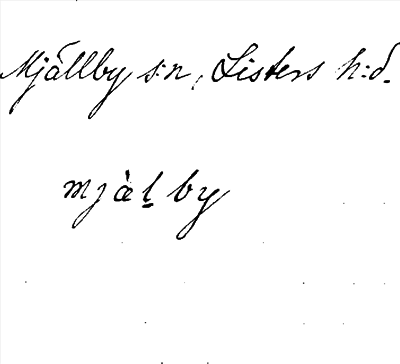 Mjällby s:n, Listers h:d.
mjàl̠ by